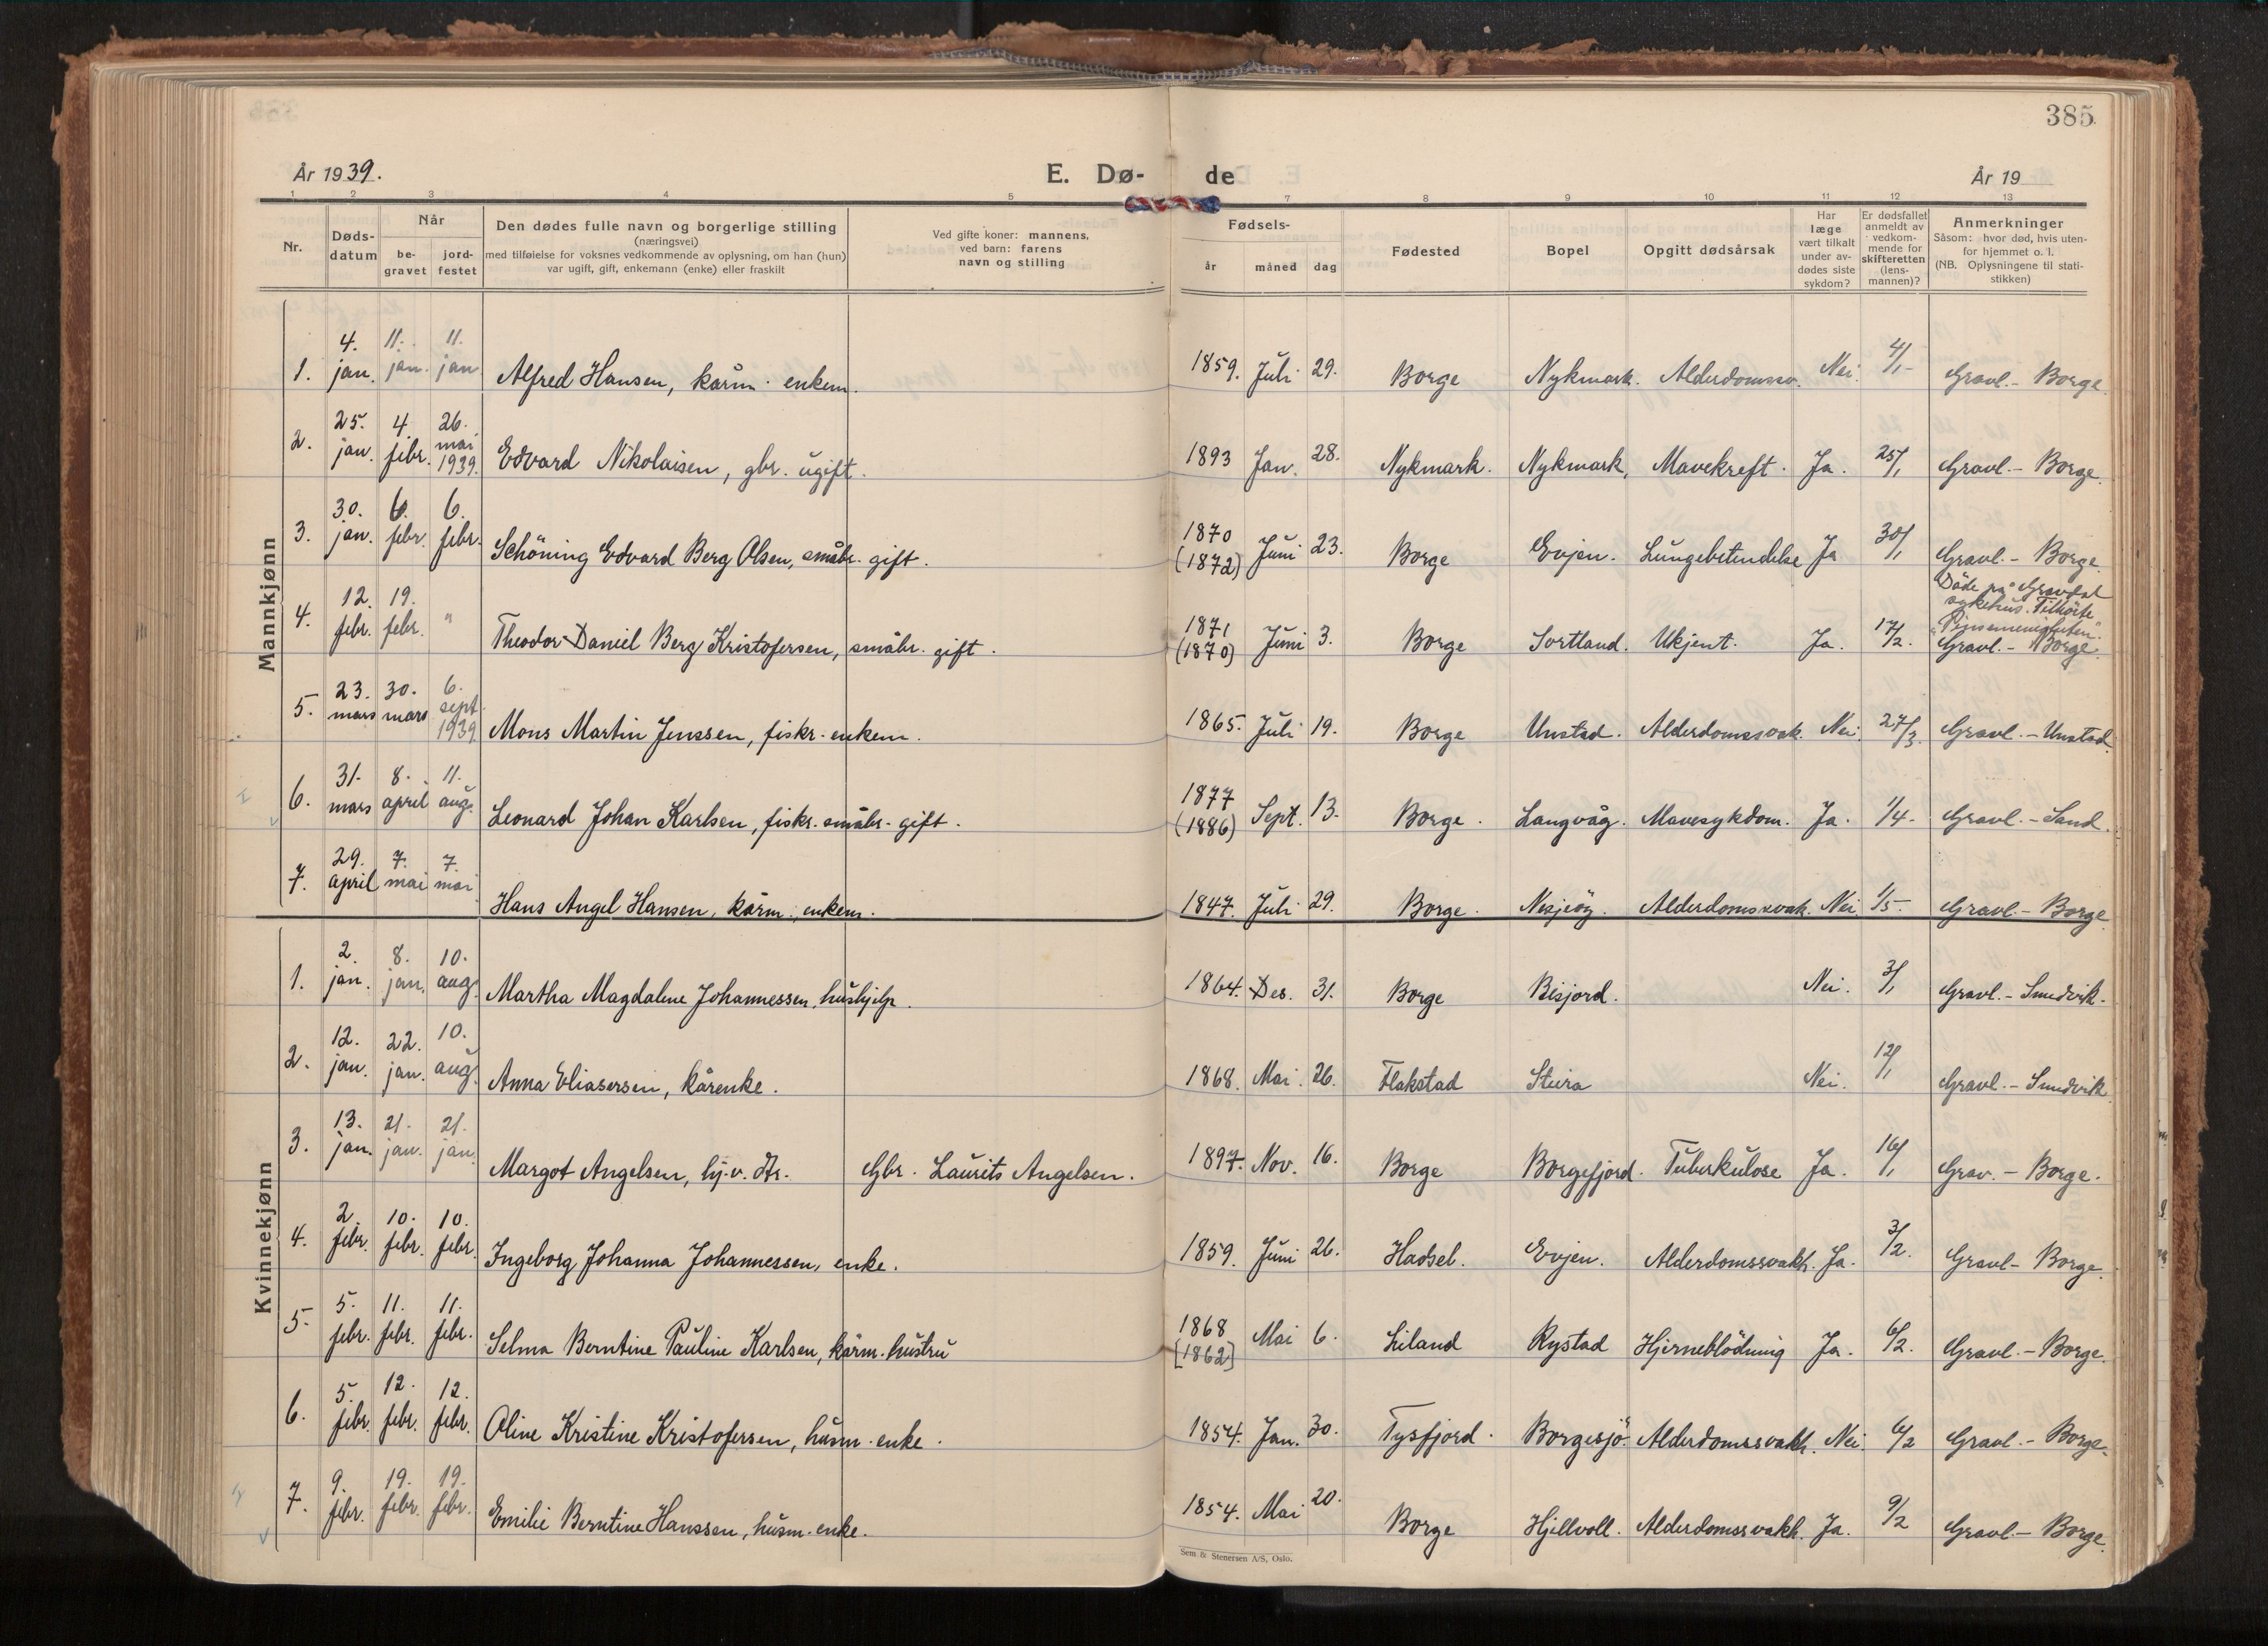 385
År 1939.
E. Dø-
de
År 19
1 2 3 4 5 7 8 9 10 11 12 13
Nr.
Døds-
datum
Når
be-
gravet
jord-
festet
Den dødes fulle navn og borgerlige stilling
(næringsvei)
med tilføielse for voksnes vedkommende av oplysning, om han (hun)
var ugift, gift, enkemann (enke) eller fraskilt
Ved gifte koner: mannens,
ved barn: farens
navn og stilling
Fødsels-
år måned dag
Fødested
Bopel
Opgitt dødsårsak
Har
læge
vært tilkalt
under av-
dødes siste
sykdom?
Er dødsfallet
anmeldt av
vedkom-
mende for
skifteretten
(lens-
mannen)?
Anmerkninger
Såsom: hvor død, hvis uten-
for hjemmet o. l.
(NB. Oplysningene til stati-
stikken)
Mannkjønn
1. 4. jan. 11. jan. 11. jan Alfred Hansen, kårm. enkem. 1859. Juli 29. Borge Nykmark. Alderdomssv. Nei. 4/1- Gravl. - Borge.
2. 25. jan. 4. febr. 26. mai 1939. Edvard Nikolaisen, gbr. ugift. 1893 Jan. 28. Nykmark. Nykmark, Mavekreft. Ja. 25/1 Gravl. - Borge.
3. 30. jan. 6. febr. 6. febr. Schöning Edvard Berg Olsen, småbr. gift. 1870 (1872) Juni 23. Borge Evjen. Lungebetendelse Ja 30/1 Gravl. - Borge.
Döde på Gravdal
sykehus. Tilhörte
"Pinsemenigheten".
4. 12. febr. 19. febr. " Theodor Daniel Berg Kristofersen, småbr. gift. 1871 (1870) Juni 3. Borge Sortland. Ukjent. Ja. 17/2. Gravl. - Borge.
5. 23. mars 30. mars 6. sept. 1939. Mons Martin Jenssen, fiskr. enkem. 1865. Juli 19. Borge Unstad. Alderdomssvak. Nei. 27/3. Gravl. - Unstad.
6. 31. mars 8. april 11. aug. Leonard Johan Karlsen, fiskr. småbr. gift. 1877 (1886) Sept. 13. Borge. Langvåg. Mavesykdom. Ja. 1/4. Gravl. - Sand.
7. 29. april 7. mai 7. mai Hans Angel Hansen, kårm., enkem. 1847. Juli 29. Borge. Alderdomssvak. Nei 1/5. Gravl. - Borge.
Kvinnekjønn
1. 2. jan. 8. jan. 10. aug. Martha Magdalene Johannessen, hushjelp. 1864. Des. 31. Borge Bisjord. Nei. 3/1 Gravl. - Smedvik.
2. 12. jan. 22. jan. 10. aug. Anna Eliasersen, kårenke. 1868. Mai. 26. Flakstad Steira Nei. 12/1 Gravl. - Smedvik
3. 13. jan. 21. jan. 21. jan. Margot Angelsen, hj. v. dtr. Gbr. Laurits Angelsen. 1897. Nov. 16. Borge Borgefjord. Tuberkulose Ja. 16/1 Grav. - Borge.
4. 2. febr. 10. febr. 10. febr. Ingeborg Johanna Johannessen, enke. 1859. Juni 26. Hadsel. Evjen. Alderdomssvakh. Ja. 3/2. Gravl - Borge.
5. 5. febr. 11. febr. 11. febr. Selma Berntine Pauline Karlsen, kårm. hustru 1868 [1862] Mai 6. Liland Rystad Hjerneblödning Ja. 6/2. Gravl. - Borge.
6. 5. febr. 12. febr. 12. febr. Oline Kristine Kristofersen, husm. enke. 1854. Jan. 30. Tysfjord. Borgesjö. Alderdomssvakh. Nei. 6/2 Gravl. - Borge.
7. 9. febr. 19. febr. 19. febr. Emilie Berntine Hanssen, husm. enke. 1854. Mai 20. Borge Hjellvoll. Alderdomssvakh. Ja. 9/2 Gravl. - Borge.
Sem & Stenersen A/S, Oslo.